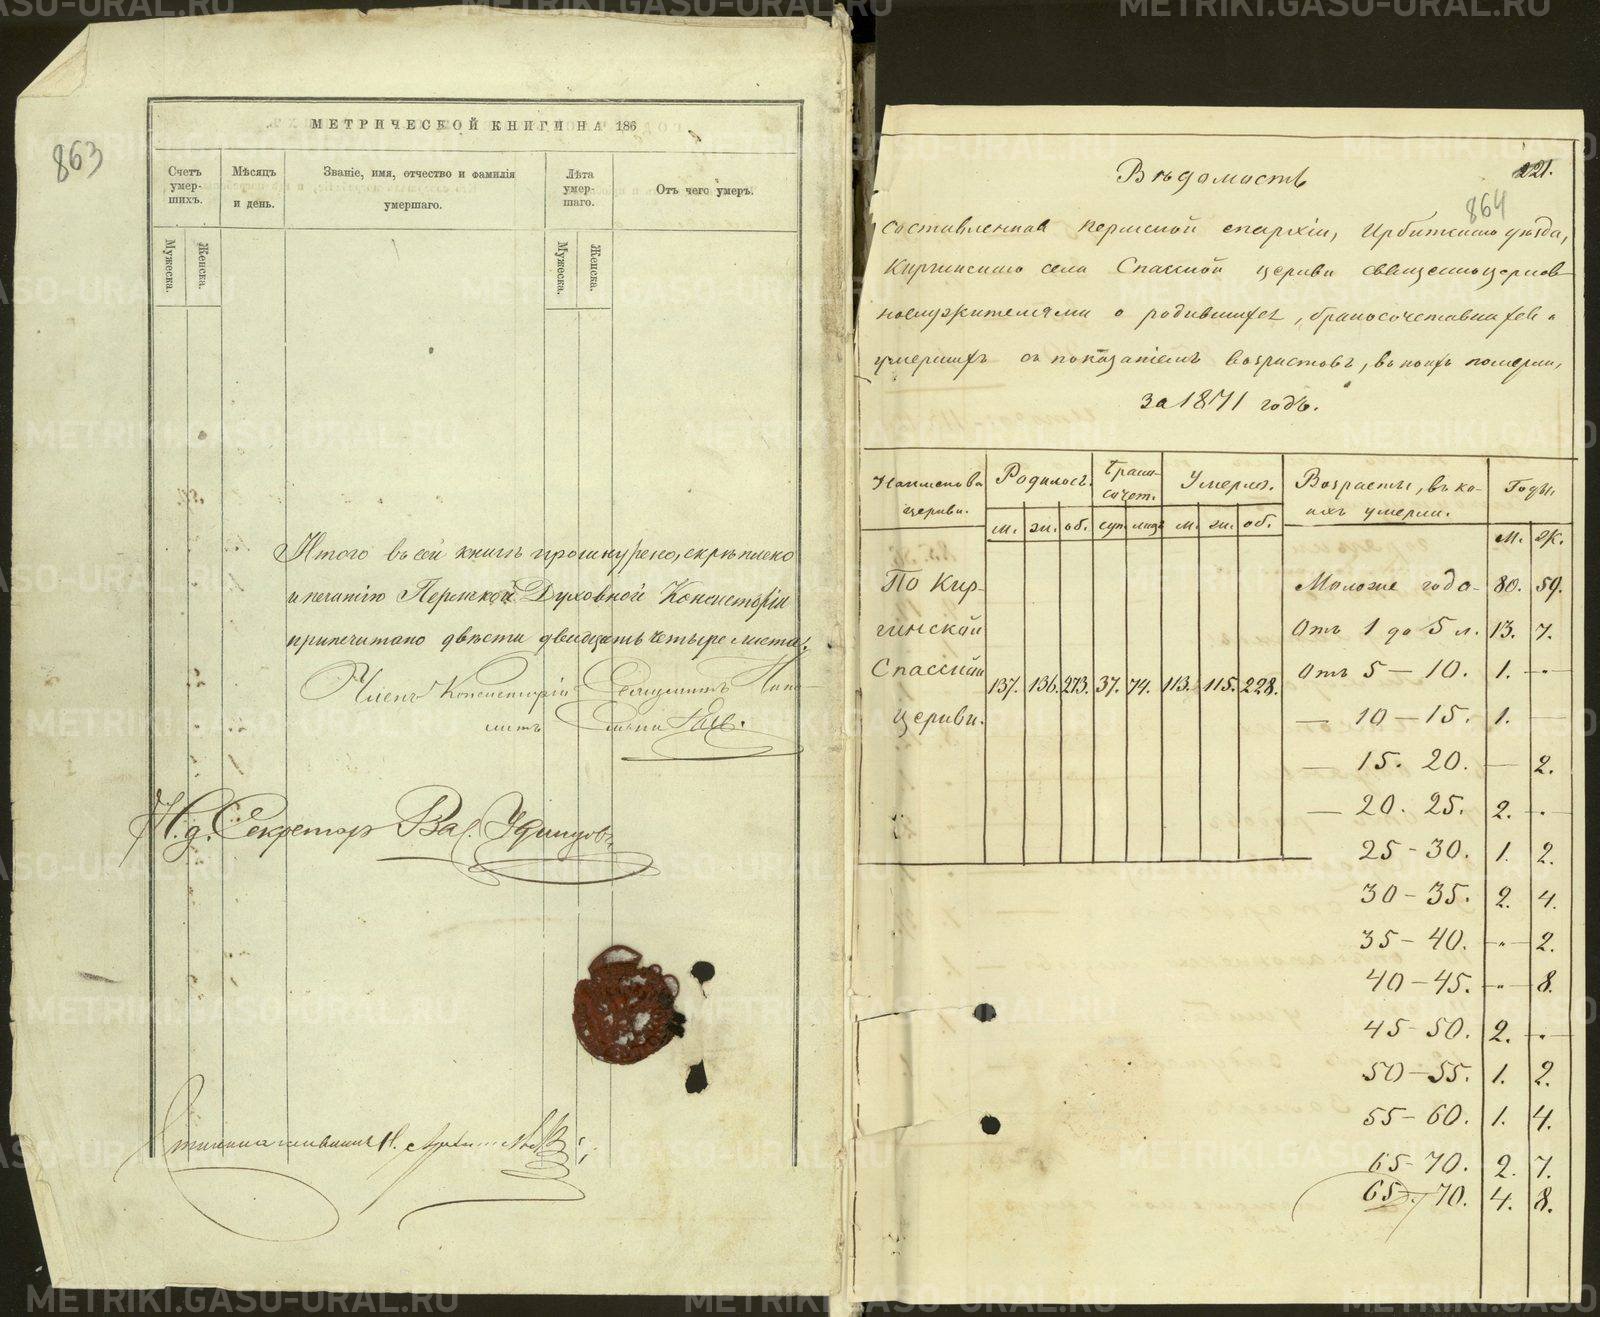 863
МЕТРИЧЕСКОЙ КНИГИ НА 186
Счетъ умер-шихъ.
Мѣсяцъ и день.
Званіе, имя, отчество и фамилія умершаго.
Лѣта умер-шаго.
Отъ чего умеръ.
Мужеска.
Женска.
Мужеска.
Женска.
Итого въ сей книгѣ прошнурено, скрѣплено
и печатію Пермской Духовной Консисторіи
припечатано двѣсти двадцать четыре листа.
Членъ Консисторіи
И. д. Секретаря Вас. Удинцовъ
221.
864
Вѣдомость
составленная Пермской епархіи, Ирбитскаго уѣзда,
Киргинскаго села Спасской церкви священноцерков
нослужителями о родившихся, бракосочетавшихся и
умершихъ съ показаніемъ возрастовъ, въ коихъ померли,
за 1871 годъ.
Наименова церкви.
Родилось.
Брако-сочет.
Умерло.
Возрасты, въ ко-ихъ умерли.
Годы.
м. ж. об. суп. лицъ м. ж. об.
М. Ж.
По Кир-
гинской
Спасской
церкви.
137. 136. 273. 37. 74. 113. 115. 228.
Моложе года - 80. 59.
Отъ 1 до 5 л. 13. 7.
Отъ 5 — 10. 1. — " —
— 10 — 15. 1. —
— 15. 20. — 2.
— 20. 25. 2. - " -
25 - 30. 1. 2.
30 - 35. 2. 4.
35 - 40. - " - 2.
40 - 45. - " - 8.
45 - 50. 2. - " -
50 - 55. 1. 2.
55 - 60. 1. 4.
65 - 70. 2. 7.
65 - 70. 4. 8.
METRIKI.GASO-URAL.RU